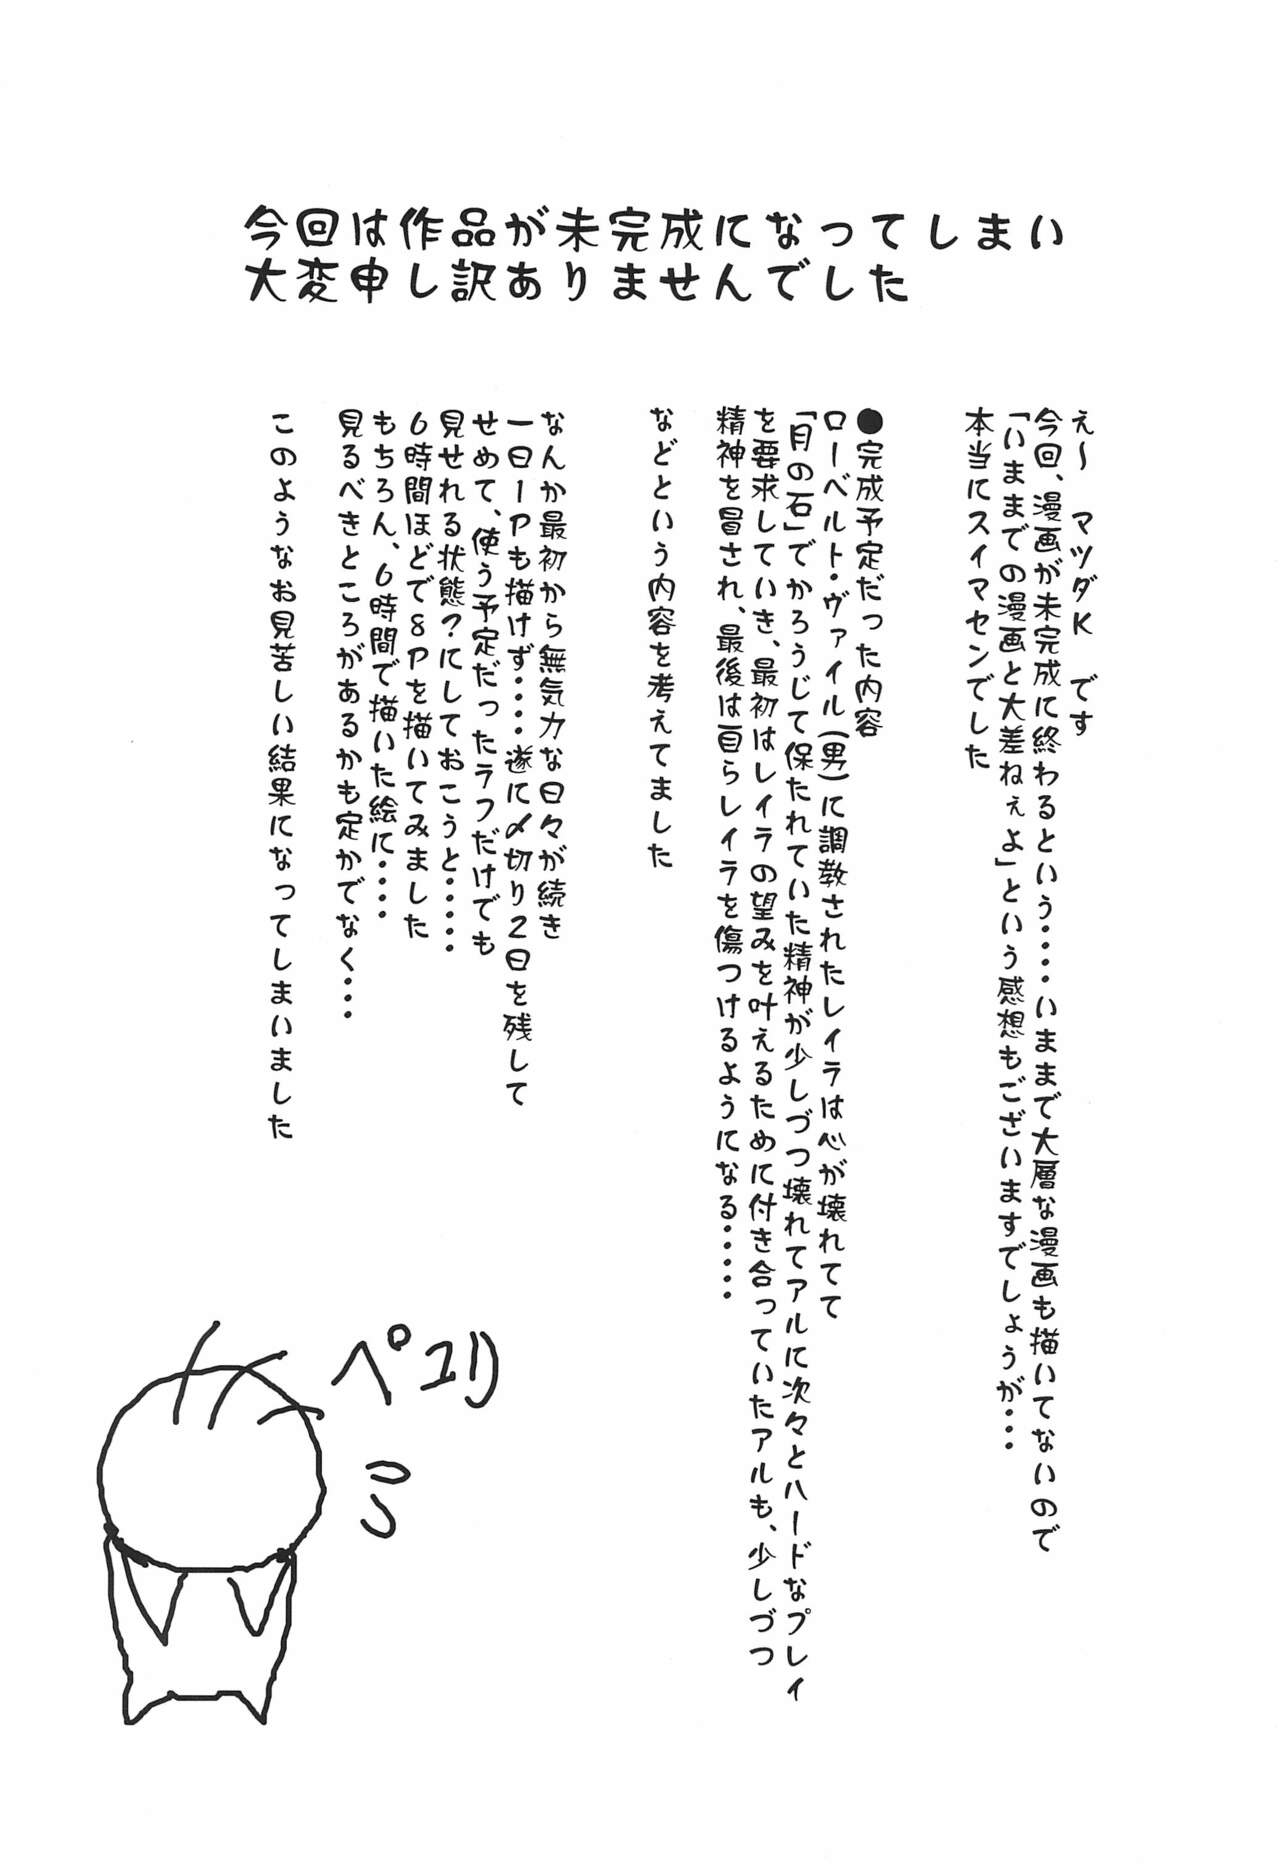 今回は作品が未完成になってしまい
大変申し訳ありませんでした
え～　マツダK　です
今回、漫画が未完成に終わるという・・・・いままで大層な漫画も描いてないので
「いままでの漫画と大差ねぇよ」という感想もございますでしょうが・・・
本当にスイマセンでした
●完成予定だった内容
ローベルト・ヴァイル(男)に調教されたレイラは心が壊れてて
「月の石」でかろうじて保たれていた精神が少しづつ壊れてアルに次々とハードなプレイ
を要求していき、最初はレイラの望みを叶えるために付き合っていたアルも、少しづつ
精神を冒され、最後は自らレイラを傷つけるようになる・・・・・
などという内容を考えてました
なんか最初から無気力な日々が続き
一日1Pも描けず・・・・遂に〆切り2日を残して
せめて、使う予定だったラフだけでも
見せれる状態？にしておこうと・・・・・
6時間ほどで8Pを描いてみました
もちろん、6時間で描いた絵に・・・・
見るべきところがあるかも定かでなく・・・
このようなお見苦しい結果になってしまいました
ペコリ